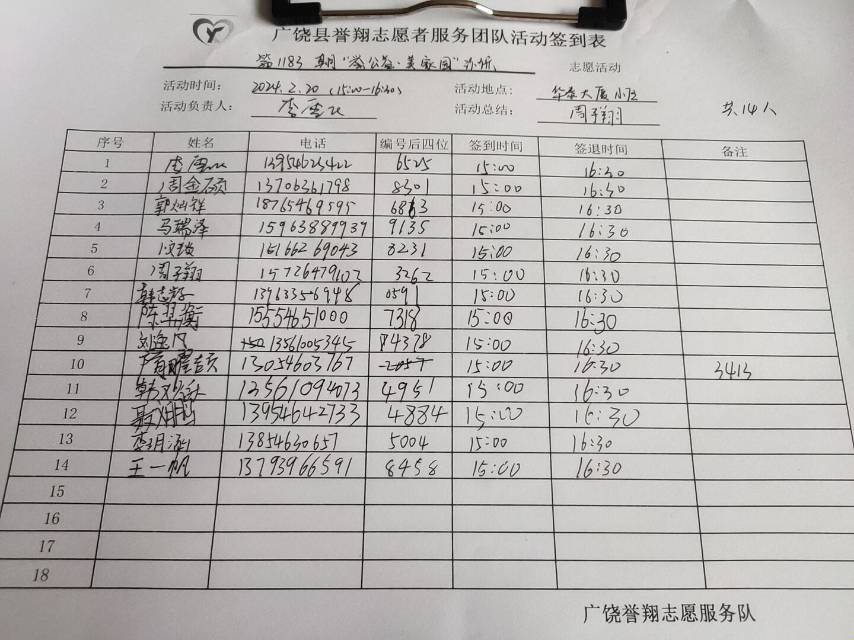 广饶县誉翔志愿者服务团队活动签到表
第1183期"益·美家园" 志愿活动
活动时间： 2024.2.20（15:00-16:30） 活动地点： 华泰大厦小区
活动负责人： 李雪 活动总结： 周子翔 共14人
序号 姓名 电话 编号后四位 签到时间 签退时间 备注
1 李雪 13954623422 6525 15:00 16:30
2 周金硕 13706361798 8301 15:00 16:30
3 郭灿祥 18765469595 6863 15:00 16:30
4 马瑞泽 15963889939 9135 15:00 16:30
5 15166269043 8231 15:00 16:30
6 周子翔 15726479102 3262 15:00 16:30
7 韩志 13963356948 0591 15:00 16:30
8 陈羿衡 15554651000 7318 15:00 16:30
9 刘 13561005345 4378 15:00 16:30
10 13054603767 2057 15:00 16:30 3413
11 韩 13561094073 4951 15:00 16:30
12 聂 13954642733 4884 15:00 16:30
13 李玥涵 13854630657 5004 15:00 16:30
14 王一帆 13793966591 8458 15:00 16:30
15
16
17
18
广饶誉翔志愿服务队